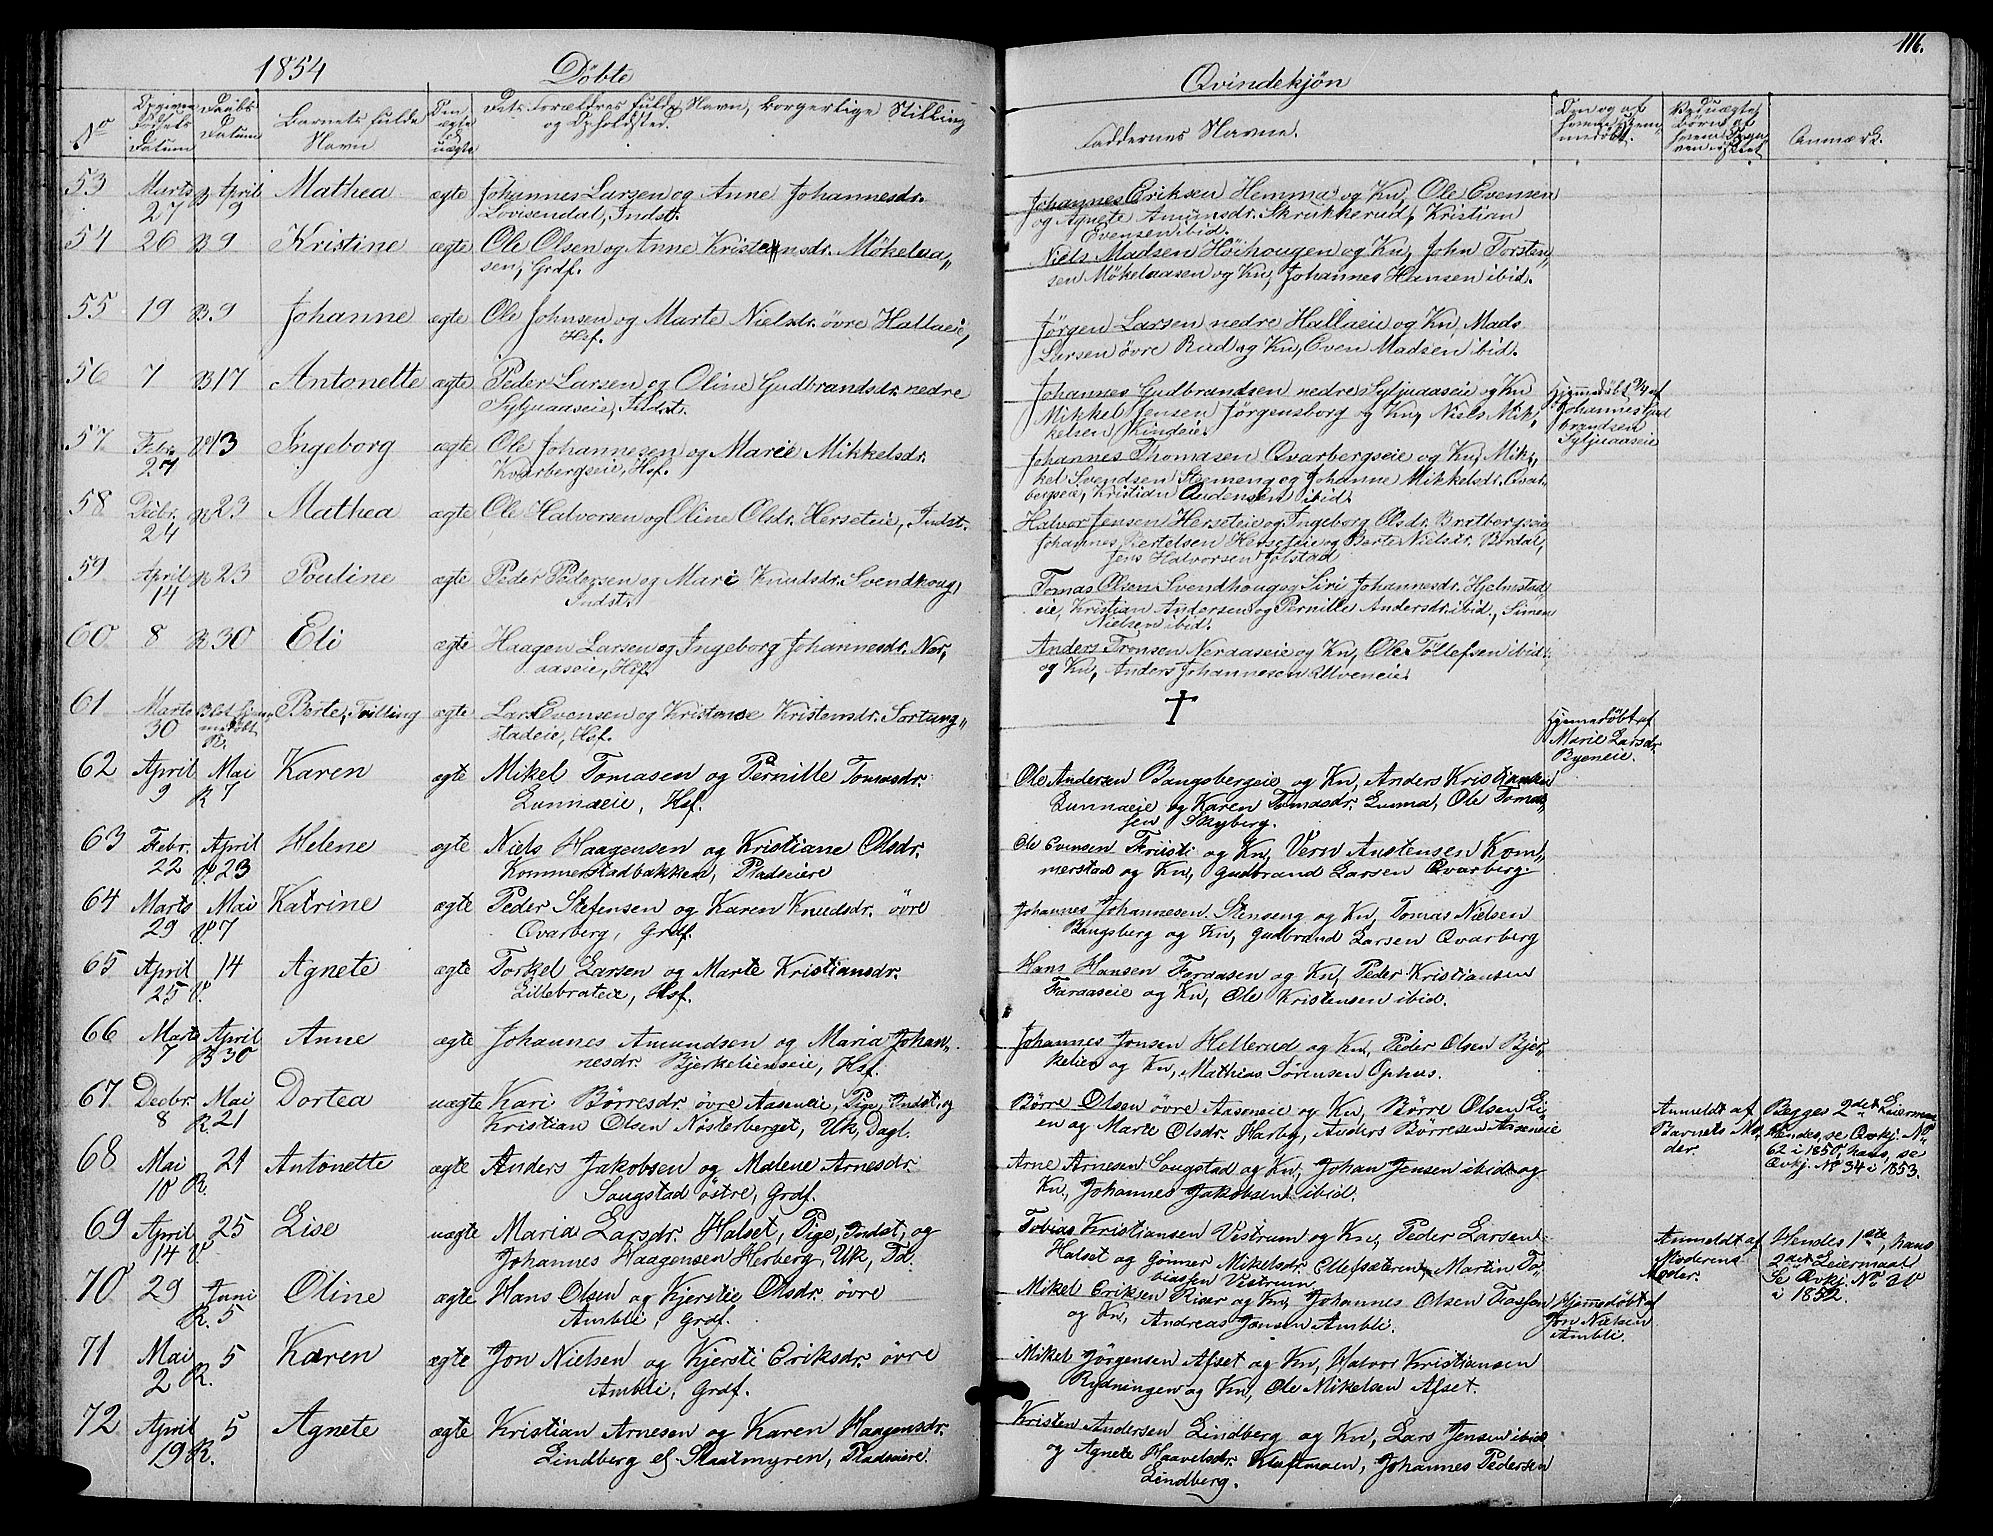 116.
1854 Døbte Qvindekjøn
No
Opgiven Fødsels Datum
Daabs Datum
Barnets fulde Navn
Om ægte og uægte
Dets Forældres fulde Navn, borgerlige Stilling og Opholdsted.
Faddernes Navne.
Om og af hvem hjemmedøbt.
Anmærk.
53 Marts 27 B April 9 Mathea ægte Johannes Larsen og Anne Johannesdr.
Lovisendal, Indst.
Johannes Eriksen Hemma og Kn, Ole Evensen
og Agnete Amunsdr. Skrukkerud, Kristian
Evensen ibid.
54 26 B 9 Kristine ægte Ole Olsen og Anne Kristensdr. Møkelaa„
sen, Grdf.
Niels Madsen Høihougen og Kn, John Torsten„
sen Møkelaasen og Kn, Johannes Hansen ibid.
55 19 B. 9 Johanne ægte Ole Johnsen og Marte Nielsdr. övre Hallaeie,
Hsf.
Jørgen Larsen nedre Hallaeie og Kn, Mads
Larsen övre Rud og Kn, Even Madsen ibid.
56 7 B 17 Antonette ægte Peder Larsen og Oline Gudbrandsdr. nedre
Syljuaaseie, Indst.
Johannes Gudbrandsen nedre Syljuaaseie og Kn
Mikkel Jensen Jørgensborg og Kn, Niels Mik„
kelsen Kindeie.
Hjemmedøbt af
Johannes Gud
brandsen
Syljuaaseie
57 Febr. 27 13 Ingeborg ægte Ole Johannesen og Marie Mikkelsdr.
Kvarbergseie, Hsf.
Johannes Thomasen Qvarbergseie og Kn, Mik„
kel Svendsen Steenseng og Johanne Mikkelsdr. Qvar„
bergseie, Kristian Andersen ibid.
58 Decbr. 24 R 23 Mathea ægte Ole Halvorsen og Oline Olsdr. Herseteie, Indst.
Halvor Jensen Herseteie og Ingeborg Olsdr. Bratbergseie
Johannes Bertelsen Herseteie og Berte Nielsdr. Bördal,
Jens Halvorsen Jølstad
59 April 14 R 23 Pouline ægte Peder Pedersen og Mari Knudsdr. Svendhoug,
Indst.
Tomas Olsen Svendhoug og Siri Johannesdr. Hjelmstad
eie, Kristian Andersen og Pernille Andersdr. ibid., Simen
Nielsen ibid.
60 8 R 30 Eli ægte Haagen Larsen og Ingeborg Johannesdr. Ner„
aaseie, Hsf.
Anders Tronsen Neraaseie og Kn, Ole Tollefsen ibid.
og Kn, Anders Johannesen Ulveneie.
61 Marts 30 Blot hjem„
medøbt
R. Berte, Tvilling ægte Lars Evensen og Kristense Kristensdr. Sortung„
stadeie, Hsf.
†
Hjemmedøbt af
Marie Larsdr.
Byeneie.
62 April 9 Mai R 7 Karen ægte Mikel Tomasen og Pernille Tomasdr.
Lunnaeie, Hsf.
Ole Andersen Bangsbergeie og Kn, Anders Kristiansen
Lunnaeie og Karen Tomasdr. Lunna, Ole Tomas„
sen Skyberg.
63 Febr. 22 April V. 23 Helene ægte Niels Haagensen og Kristiane Olsdr.
Kommerstadbakken, Pladseiere
Ole Evensen Friisti og Kn, Vern Austensen Kom„
merstad og Kn, Gudbrand Larsen Qvarberg.
64 Marts 29 Mai V. 7 Katrine ægte Peder Stefensen og Karen Knudsdr. övre
Qvarberg, Grdf.
Johannes Johannesen Stenseng og Kn, Tomas Nielsen
Bangsberg og Kn, Gudbrand Larsen Qvarberg
65 April 25 14 V. Agnete ægte Torkel Larsen og Marte Kristiansdr.
Lillebrateie, Hsf.
Hans Hansen Foraasen og Kn, Peder Kristiansen
Foraaseie og Kn, Ole Kristensen ibid.
66 Marts 7 April B 30 Anne ægte Johannes Amundsen og Maria Johan„
nesdr. Bjerkelienseie, Hsf.
Johannes Jonsen Hellerud og Kn, Peder Olsen Bjer„
kelien og Kn, Mathias Sörensen Ophus.
67 Decbr. 8 Mai R. 21 Dortea uægte Kari Börresdr. övre Aaseneie, Pige, Indst, og
Kristian Olsen Nösterberget, Uk, Dagl.
Börre Olsen övre Aaseneie og Kn, Börre Olsen Li„
en og Marte Olsdr. Harby, Anders Börresen Aaseneie
Anmeldt af
Barnets Mo„
der.
Begges 2det Leiermaal
Hendes, se Qvkj. No
62 i 1850, hans, se
Qvkj. No 34 i 1853.
68 Mai 10 21 R. Antonette ægte Anders Jakobsen og Malene Arnesdr.
Sougstad östre, Grdf.
Arne Arnesen Sougstad og Kn, Johan Jensen ibid. og
Kn, Johannes Jakobsen ibid.
69 April 14 25 V. Lise uægte Maria Larsdr. Halset, Pige, Indst, og
Johannes Haagensen Herberg, Uk, Td.
Tobias Kristiansen Vestrum og Kn, Peder Larsen
Halset og Gönner Mikelsdr. Ollefsæteren, Martin To„
biassen Vestrum.
Anmeldt af
Moderens
Moder.
Hendes 1ste, hans
2det Leiermaal
Se Qvkj. No
i 1852.
70 29 Juni R. 5 Oline ægte Hans Olsen og Kjerstie Olsdr. övre
Ambli, Grdf.
Mikel Eriksen Riser og Kn, Johannes Olsen
og Kn, Andreas Jensen Ambli.
Hjemmedøbt af
Jon Nielsen
Ambli.
71 Mai 2 R. 5 Karen ægte Jon Nielsen og Kjersti Eriksdr. övre
Ambli, Grdf.
Mikel Jörgensen Afset og Kn, Halvor Kristiansen
Rydningen og Kn, Ole Mikelsen Afset.
72 April 19 R. 5 Agnete ægte Kristian Arnesen og Karen Haagensdr.
Lindberg el Skaatmyren, Pladseiere.
Kristen Andersen Lindberg og Kn, Lars Jensen ibid
og Agnete Haavelsdr. Kluftmoen, Johannes Pedersen
Lindberg.